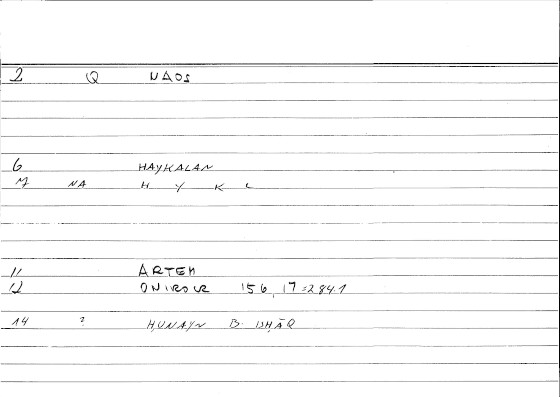 2 Q NAOS
6 HAYKALAN
M NA H Y K L
11 ARTEM
12 ONIROCR 156,17=284.1
14 ? ḤUNAYN B. ISḤĀQ